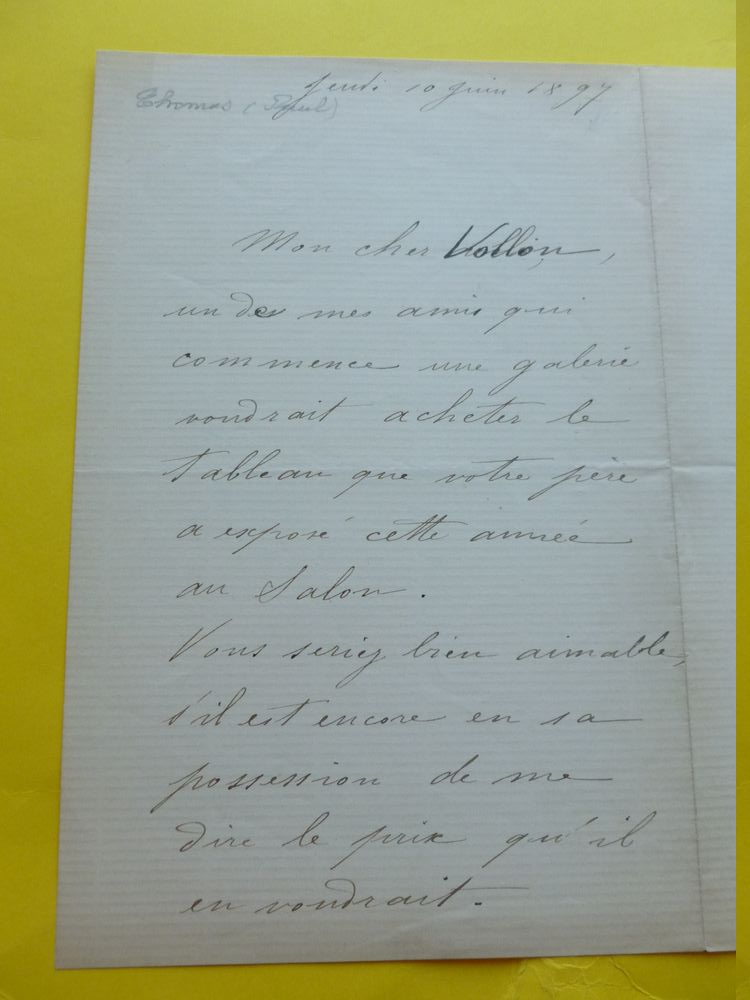 Jeudi 10 juin 1897
Thomas (Paul)
Mon cher Vollon,
un des mes amis qui
commence une galerie
voudrait acheter le
tableau que votre père
a exposé cette année
au Salon.
Vous seriez bien aimable,
s'il est encore en sa
possession de me
dire le prix qu'il
en voudrait.